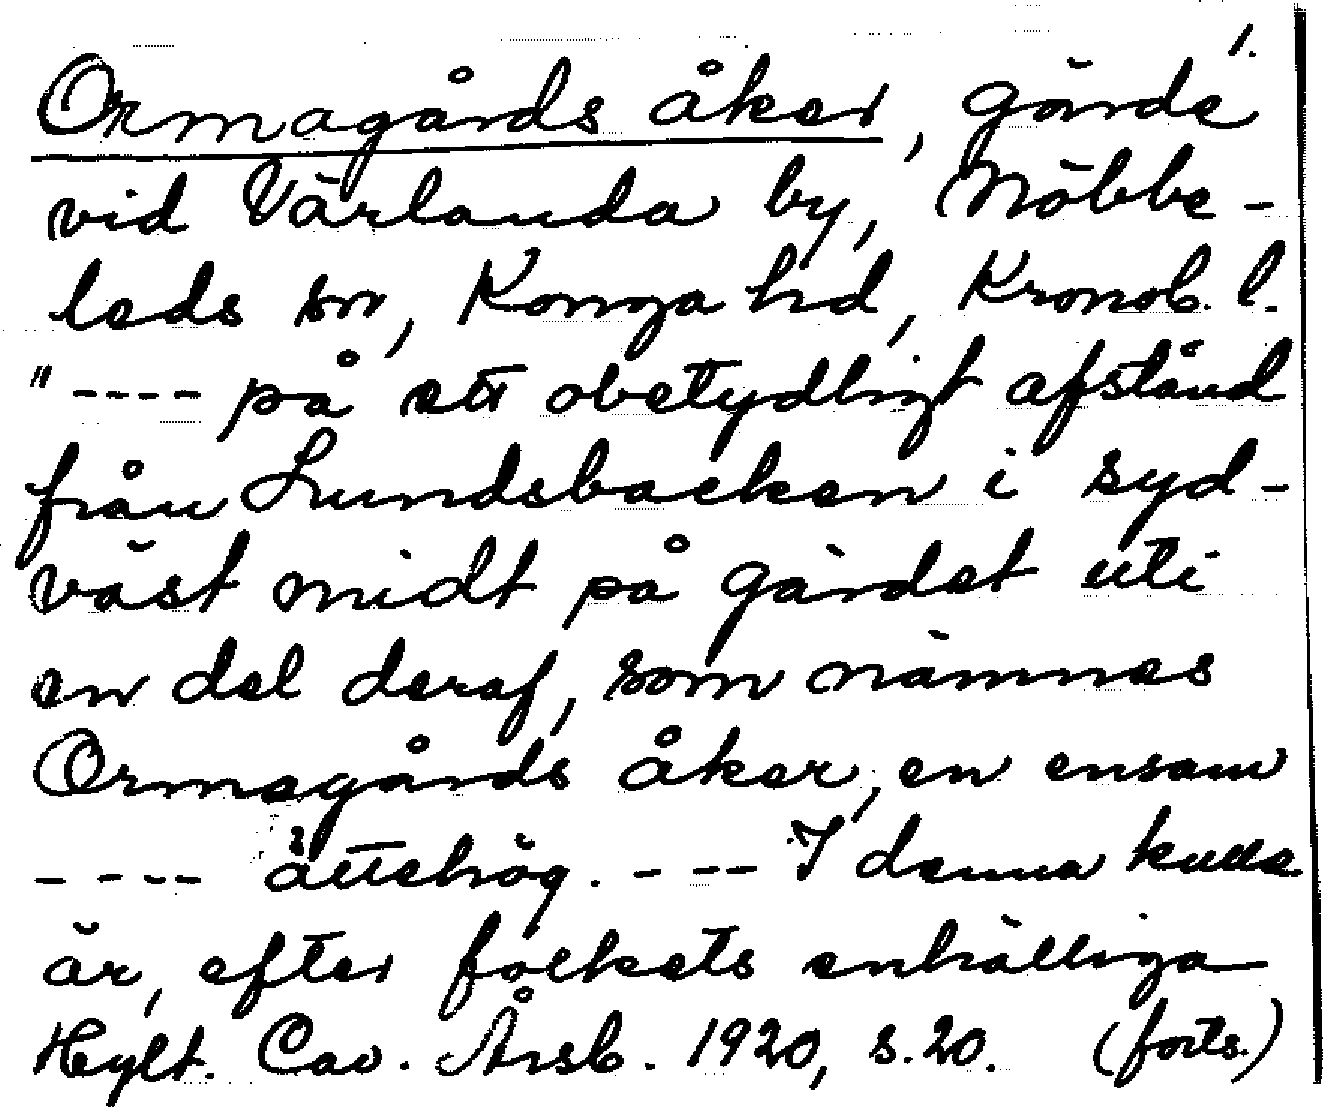 1.
Ormagårds åker, gärde
vid Värlanda by, Nöbbe-
leds sn, Konga hd, Kronob. l.
"---- på ett obetydligt afstånd
från Lundsbacken i syd-
väst midt på gärdet uti
en del deraf, som nämnes
Ormagårds åker, en ensam
---- ättehög. ---- I denna kulle
är, efter folkets enhälliga
Hylt. Cav. Årsb. 1920, s. 20. (forts.)